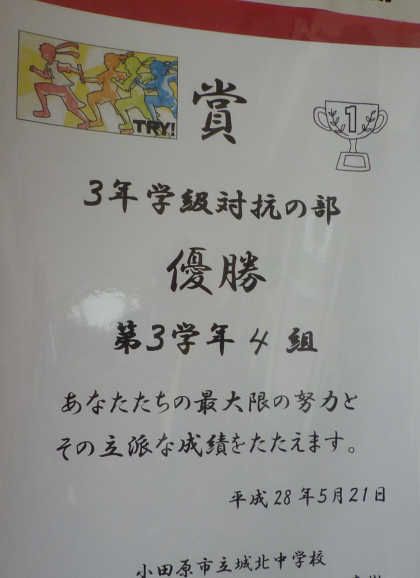 TRY!
賞
1
3年学級対抗の部
優勝
第3学年4組
あなたたちの最大限の努力と
その立派な成績をたたえます。
平成28年5月21日
小田原市立城北中学校